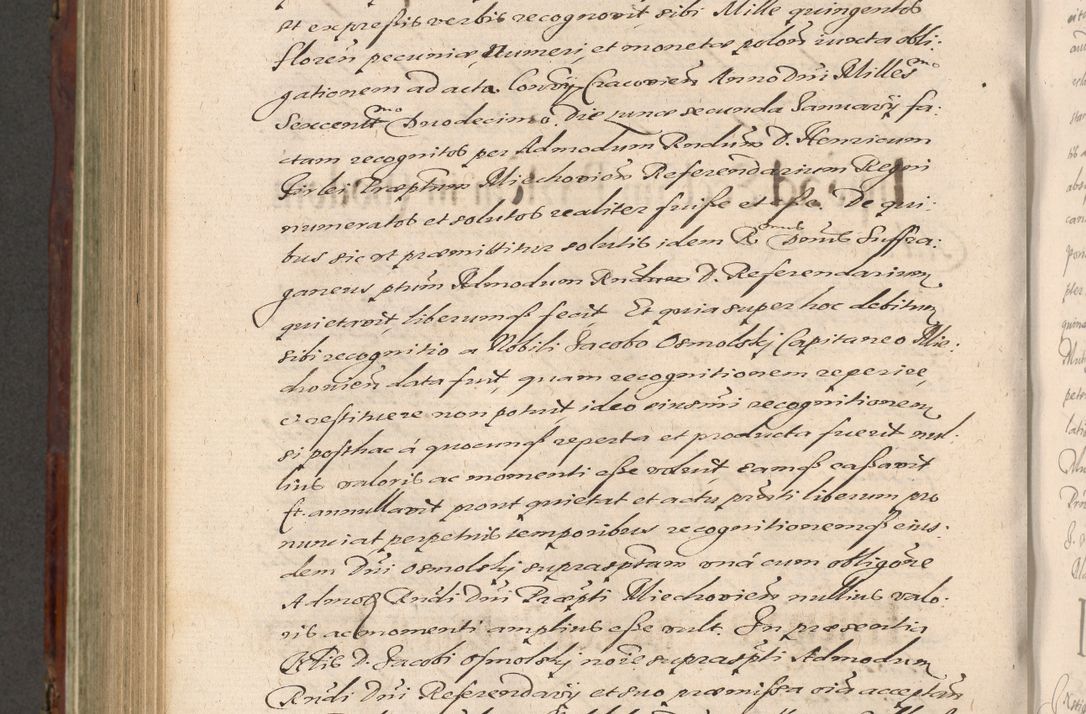 et expressis verbis recognovit sibi Mille quingentos
floren̄ pecuniæ, Numeri, et monetæ polon̄ iuxta obli:
gationem ad acta Consrÿ Cracovien̄ Anno Dn̄i Milles͞mo
Sexcent͞mo Duodecimo, Die janæ secunda Januarÿ fa:
ctam recognitos per Admodum Rndūm D. Henricum
Firlei Præptum Miechovien̄ Referendarium Regni
numeratos et solutos realiter fuisse et esse. De qui:
bus sic ut præmittitur solutis idem R͞mus Dn͞us Suffra:
ganeus ptum Admodum Rndum D. Referendarium
quietavit liberumq̃ fecit. Et quia super hoc debitum
sibi recognitio a Nobili Jacobo Osmolskj Capitaneo Mie:
chovien̄ data fuit, quam recognitionem reperire,
et restituere non potuit, ideo eiusmi recognitionem
si posthac á quocunq̃ reperta et producta fuerit nul:
lius valoris ac momenti esse voluit, eamq̃ cassavit
et annullavit prout quietat et actu pn̄ti liberum pro
nunciat perpetuis temporibus recognitionemq̃ eius:
dem Dn̄i Osmolskj supraspt̄am uná cum obligōne
Admod Rndi Dn̄i Præpti Miechovien̄ nullius valo:
ris ac momenti amplius esse vult. In præsentia
D. Jacobi Osmolskj noīe supraspt̄i Admodum
Rndi Dn̄i Referendarÿ et suo præmissa oīa acceptan